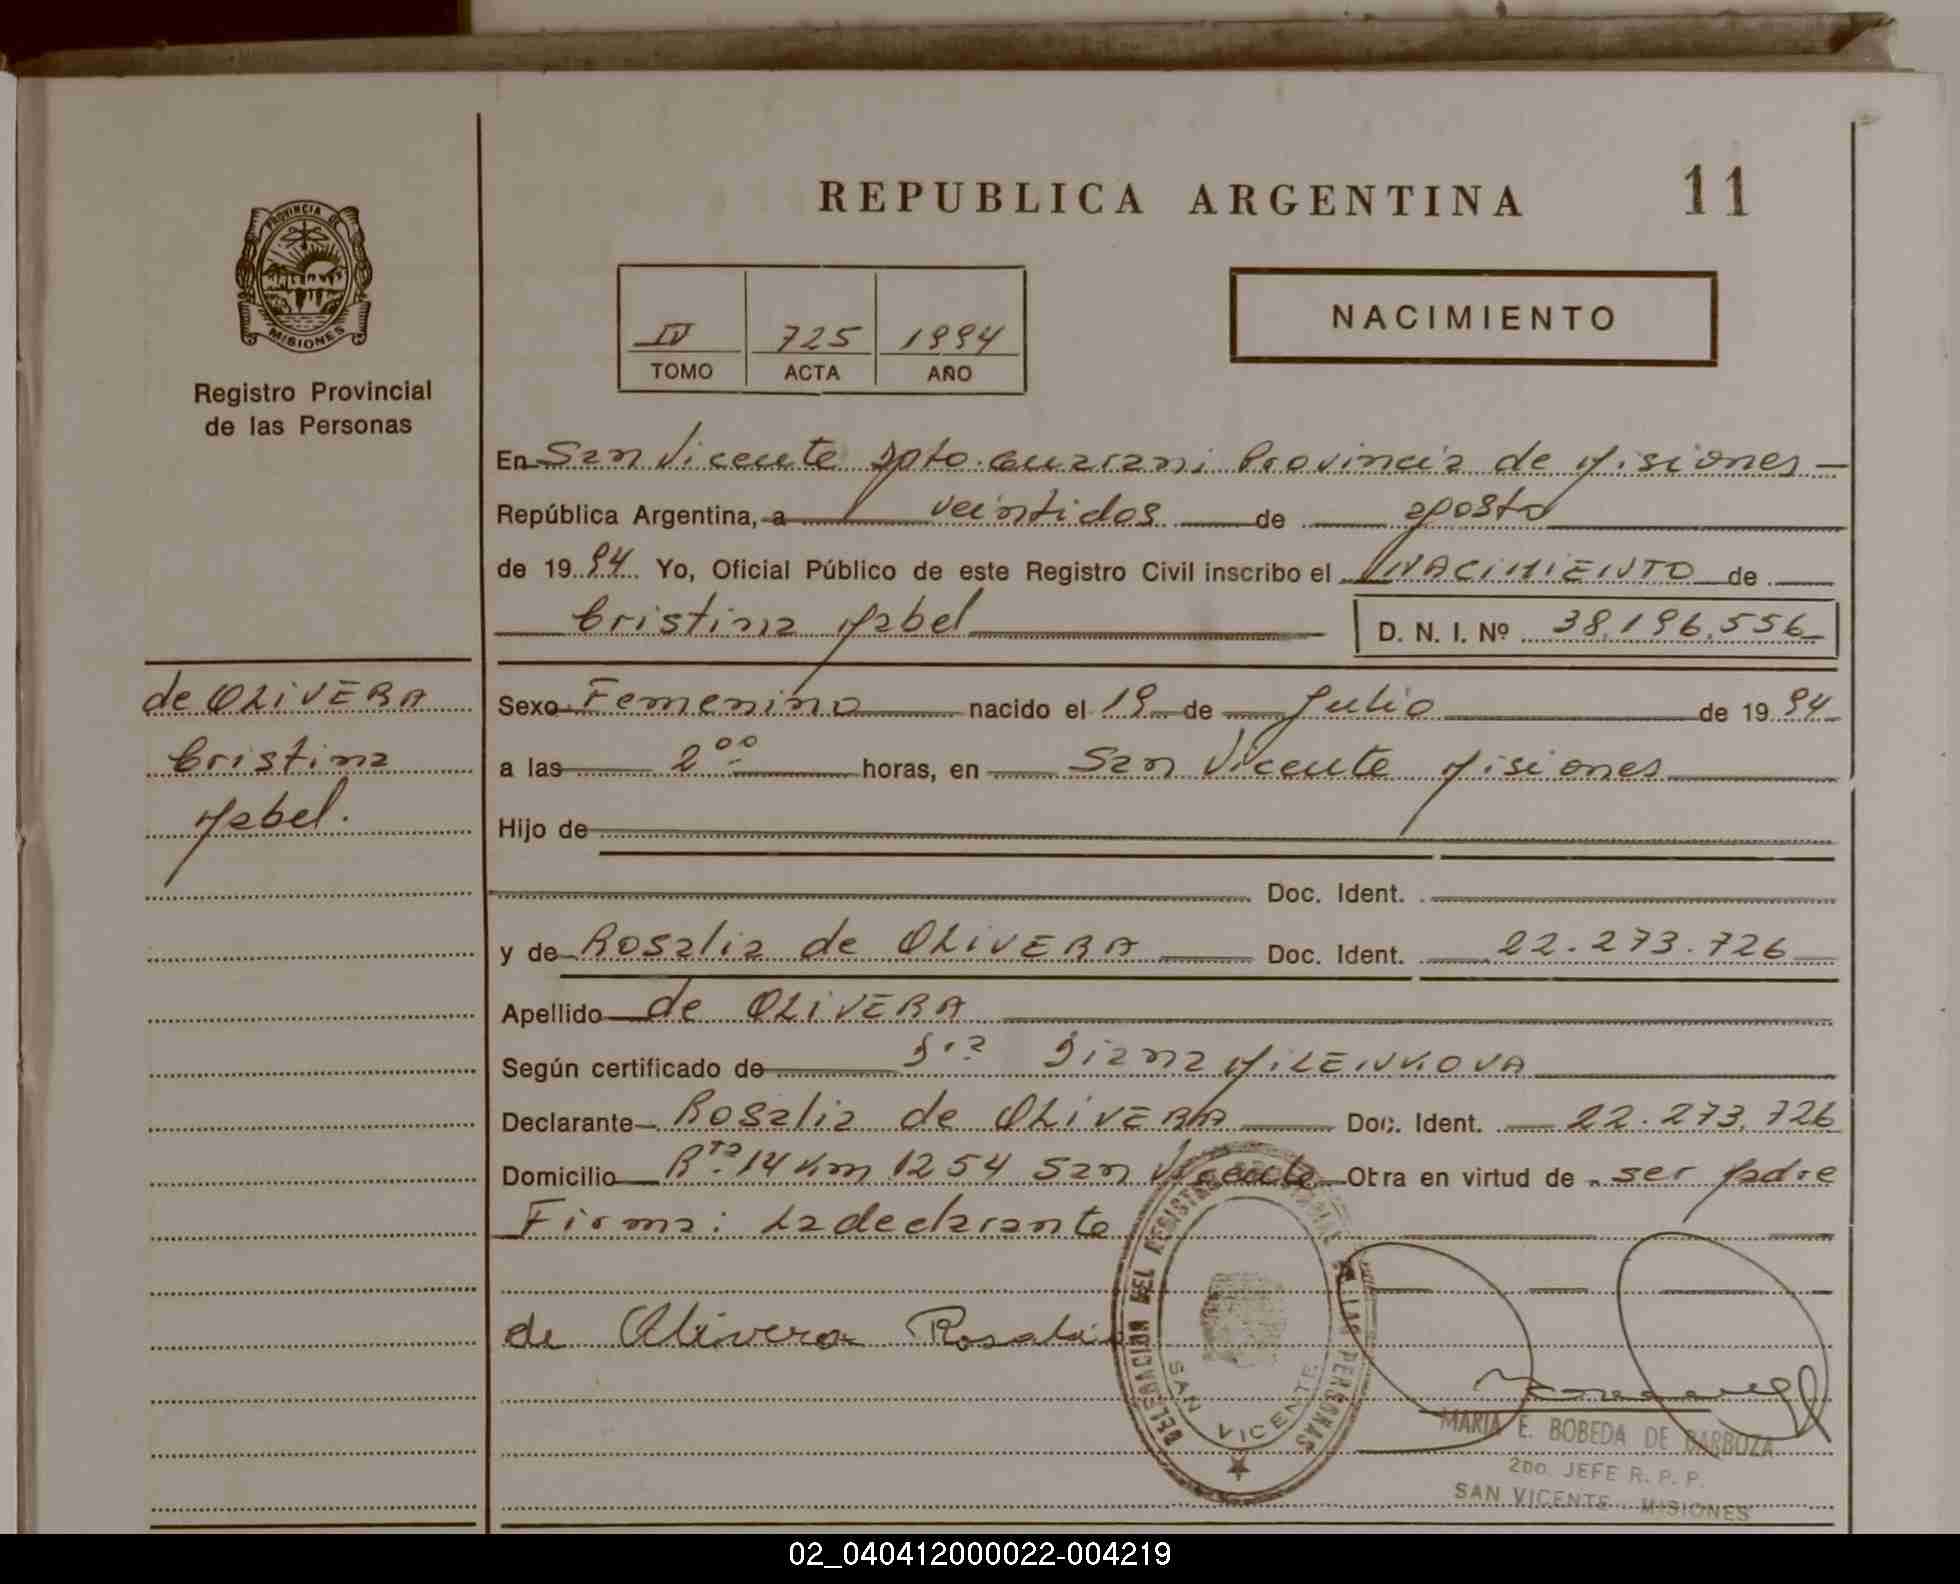 REPUBLICA ARGENTINA 11
PROVINCIA DE
MISIONES
Registro Provincial
de las Personas
IV 725 1994
TOMO ACTA AÑO
NACIMIENTO
En San Vicente Dpto. Guarani Provincia de Misiones
República Argentina, a veintidos de agosto
de 19 94 Yo, Oficial Público de este Registro Civil inscribo el NACIMIENTO de
Cristina Mabel D. N. I. Nº 38.196.556
de OLIVERA
Cristina
Mabel.
Sexo Femenino nacido el 19 de Julio de 19 94
a las 2 00 horas, en San Vicente Misiones
Hijo de
Doc. Ident.
y de Rosalia de OLIVERA Doc. Ident. 22.273.726
Apellido de OLIVERA
Según certificado de Dra Diana MILENKOVA
Declarante Rosalia de OLIVERA Doc. Ident. 22.273.726
Domicilio Rta. 14 Km 1254 San Vicente Obra en virtud de ser Madre
Firma: La declarante
de Olivera Rosalia
DELEGACION DEL REGISTRO PROVINCIAL DE LAS PERSONAS
SAN VICENTE
MARIA E. BOBEDA DE BARBOZA
2DO. JEFE R. P. P.
SAN VICENTE - MISIONES
02_040412000022-004219